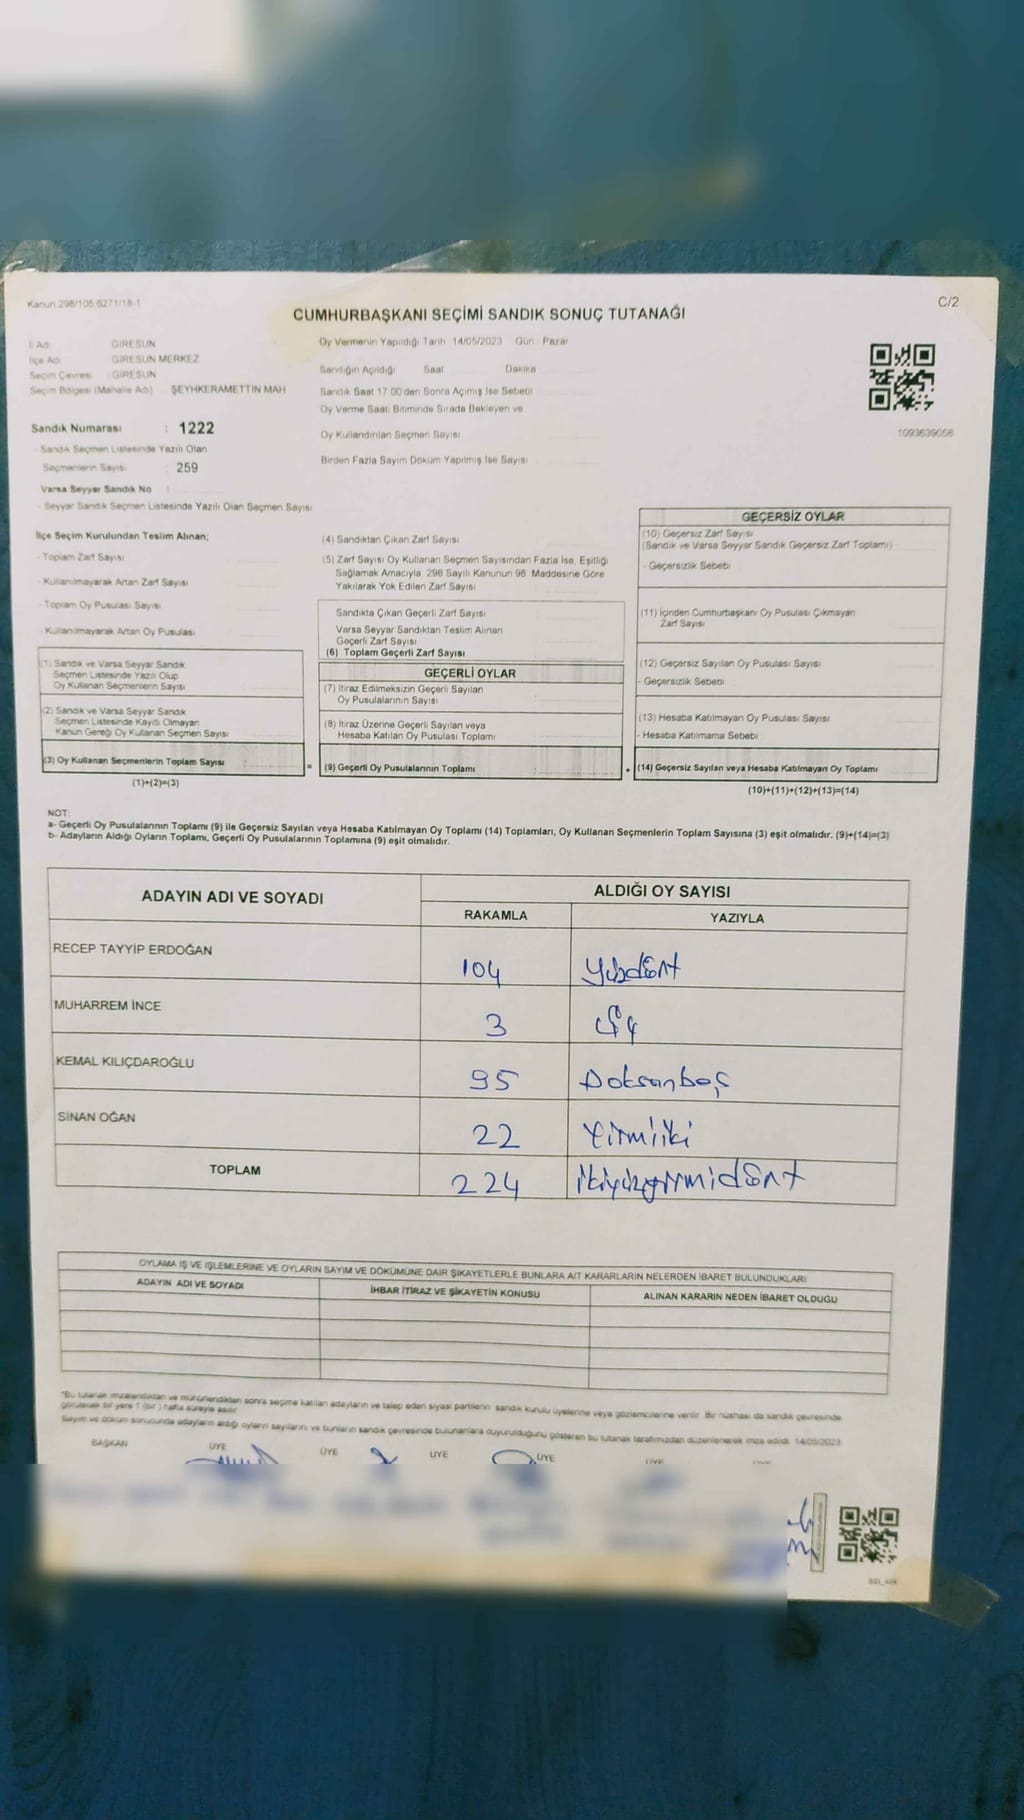 Kanun:298/105.6271/18-1
C/2
CUMHURBAŞKANI SEÇİMİ SANDIK SONUÇ TUTANAĞI
İl Adı : GİRESUN
Oy Vermenin Yapıldığı Tarih 14/05/2023 Gün : Pazar
İlçe Adı : GİRESUN MERKEZ
Seçim Çevresi : GİRESUN
Sandığın Açıldığı Saat Dakika
Seçim Bölgesi (Mahalle Adı) : ŞEYHKERAMETTİN MAH
Sandık Saat 17:00'den Sonra Açılmış İse Sebebi
Oy Verme Saati Bitiminde Sırada Bekleyen ve
Oy Kullandırılan Seçmen Sayısı
1093639056
Sandık Numarası : 1222
- Sandık Seçmen Listesinde Yazılı Olan
Seçmenlerin Sayısı : 259
Birden Fazla Sayım Döküm Yapılmış İse Sayısı
Varsa Seyyar Sandık No
- Seyyar Sandık Seçmen Listesinde Yazılı Olan Seçmen Sayısı
İlçe Seçim Kurulundan Teslim Alınan;
- Toplam Zarf Sayısı
- Kullanılmayarak Artan Zarf Sayısı
- Toplam Oy Pusulası Sayısı
- Kullanılmayarak Artan Oy Pusulası
(1) Sandık ve Varsa Seyyar Sandık
Seçmen Listesinde Yazılı Olup
Oy Kullanan Seçmenlerin Sayısı
(2) Sandık ve Varsa Seyyar Sandık
Seçmen Listesinde Kayıtlı Olmayan
Kanun Gereği Oy Kullanan Seçmen Sayısı
(3) Oy Kullanan Seçmenlerin Toplam Sayısı
(1)+(2)=(3)
=
(4) Sandıktan Çıkan Zarf Sayısı
(5) Zarf Sayısı Oy Kullanan Seçmen Sayısından Fazla İse, Eşitliği
Sağlamak Amacıyla, 298 Sayılı Kanunun 98. Maddesine Göre
Yakılarak Yok Edilen Zarf Sayısı
Sandıkta Çıkan Geçerli Zarf Sayısı
Varsa Seyyar Sandıktan Teslim Alınan
Geçerli Zarf Sayısı
(6) Toplam Geçerli Zarf Sayısı
GEÇERLİ OYLAR
(7) İtiraz Edilmeksizin Geçerli Sayılan
Oy Pusulalarının Sayısı
(8) İtiraz Üzerine Geçerli Sayılan veya
Hesaba Katılan Oy Pusulası Toplamı
(9) Geçerli Oy Pusulalarının Toplamı
+
GEÇERSİZ OYLAR
(10) Geçersiz Zarf Sayısı
(Sandık ve Varsa Seyyar Sandık Geçersiz Zarf Toplamı)
- Geçersizlik Sebebi
(11) İçinden Cumhurbaşkanı Oy Pusulası Çıkmayan
Zarf Sayısı
(12) Geçersiz Sayılan Oy Pusulası Sayısı
- Geçersizlik Sebebi
(13) Hesaba Katılmayan Oy Pusulası Sayısı
- Hesaba Katılmama Sebebi
(14) Geçersiz Sayılan veya Hesaba Katılmayan Oy Toplamı
(10)+(11)+(12)+(13)=(14)
NOT:
a- Geçerli Oy Pusulalarının Toplamı (9) ile Geçersiz Sayılan veya Hesaba Katılmayan Oy Toplamı (14) Toplamları, Oy Kullanan Seçmenlerin Toplam Sayısına (3) eşit olmalıdır. (9)+(14)=(3)
b- Adayların Aldığı Oyların Toplamı, Geçerli Oy Pusulalarının Toplamına (9) eşit olmalıdır.
ADAYIN ADI VE SOYADI ALDIĞI OY SAYISI
RAKAMLA YAZIYLA
RECEP TAYYİP ERDOĞAN 104 Yüzdört
MUHARREM İNCE 3 Üç
KEMAL KILIÇDAROĞLU 95 Doksanbeş
SİNAN OĞAN 22 Yirmiiki
TOPLAM 224 ikiyüzyirmidört
OYLAMA İŞ VE İŞLEMLERİNE VE OYLARIN SAYIM VE DÖKÜMÜNE DAİR ŞİKAYETLERLE BUNLARA AİT KARARLARIN NELERDEN İBARET BULUNDUKLARI
ADAYIN ADI VE SOYADI İHBAR İTİRAZ VE ŞİKAYETİN KONUSU ALINAN KARARIN NEDEN İBARET OLDUĞU
"Bu tutanak imzalandıktan ve mühürlendikten sonra seçime katılan adayların ve talep eden siyasi partilerin sandık kurulu üyelerine veya gözlemcilerine verilir. Bir nüshası da sandık çevresinde
görülecek bir yere 1 (bir) hafta süreyle asılır.
Sayım ve döküm sonucunda adayların aldığı oyların sayılarını ve bunların sandık çevresinde bulunanlara duyurulduğunu gösteren bu tutanak tarafımızdan düzenlenerek imza edildi. 14/05/2023
BAŞKAN ÜYE ÜYE ÜYE ÜYE ÜYE